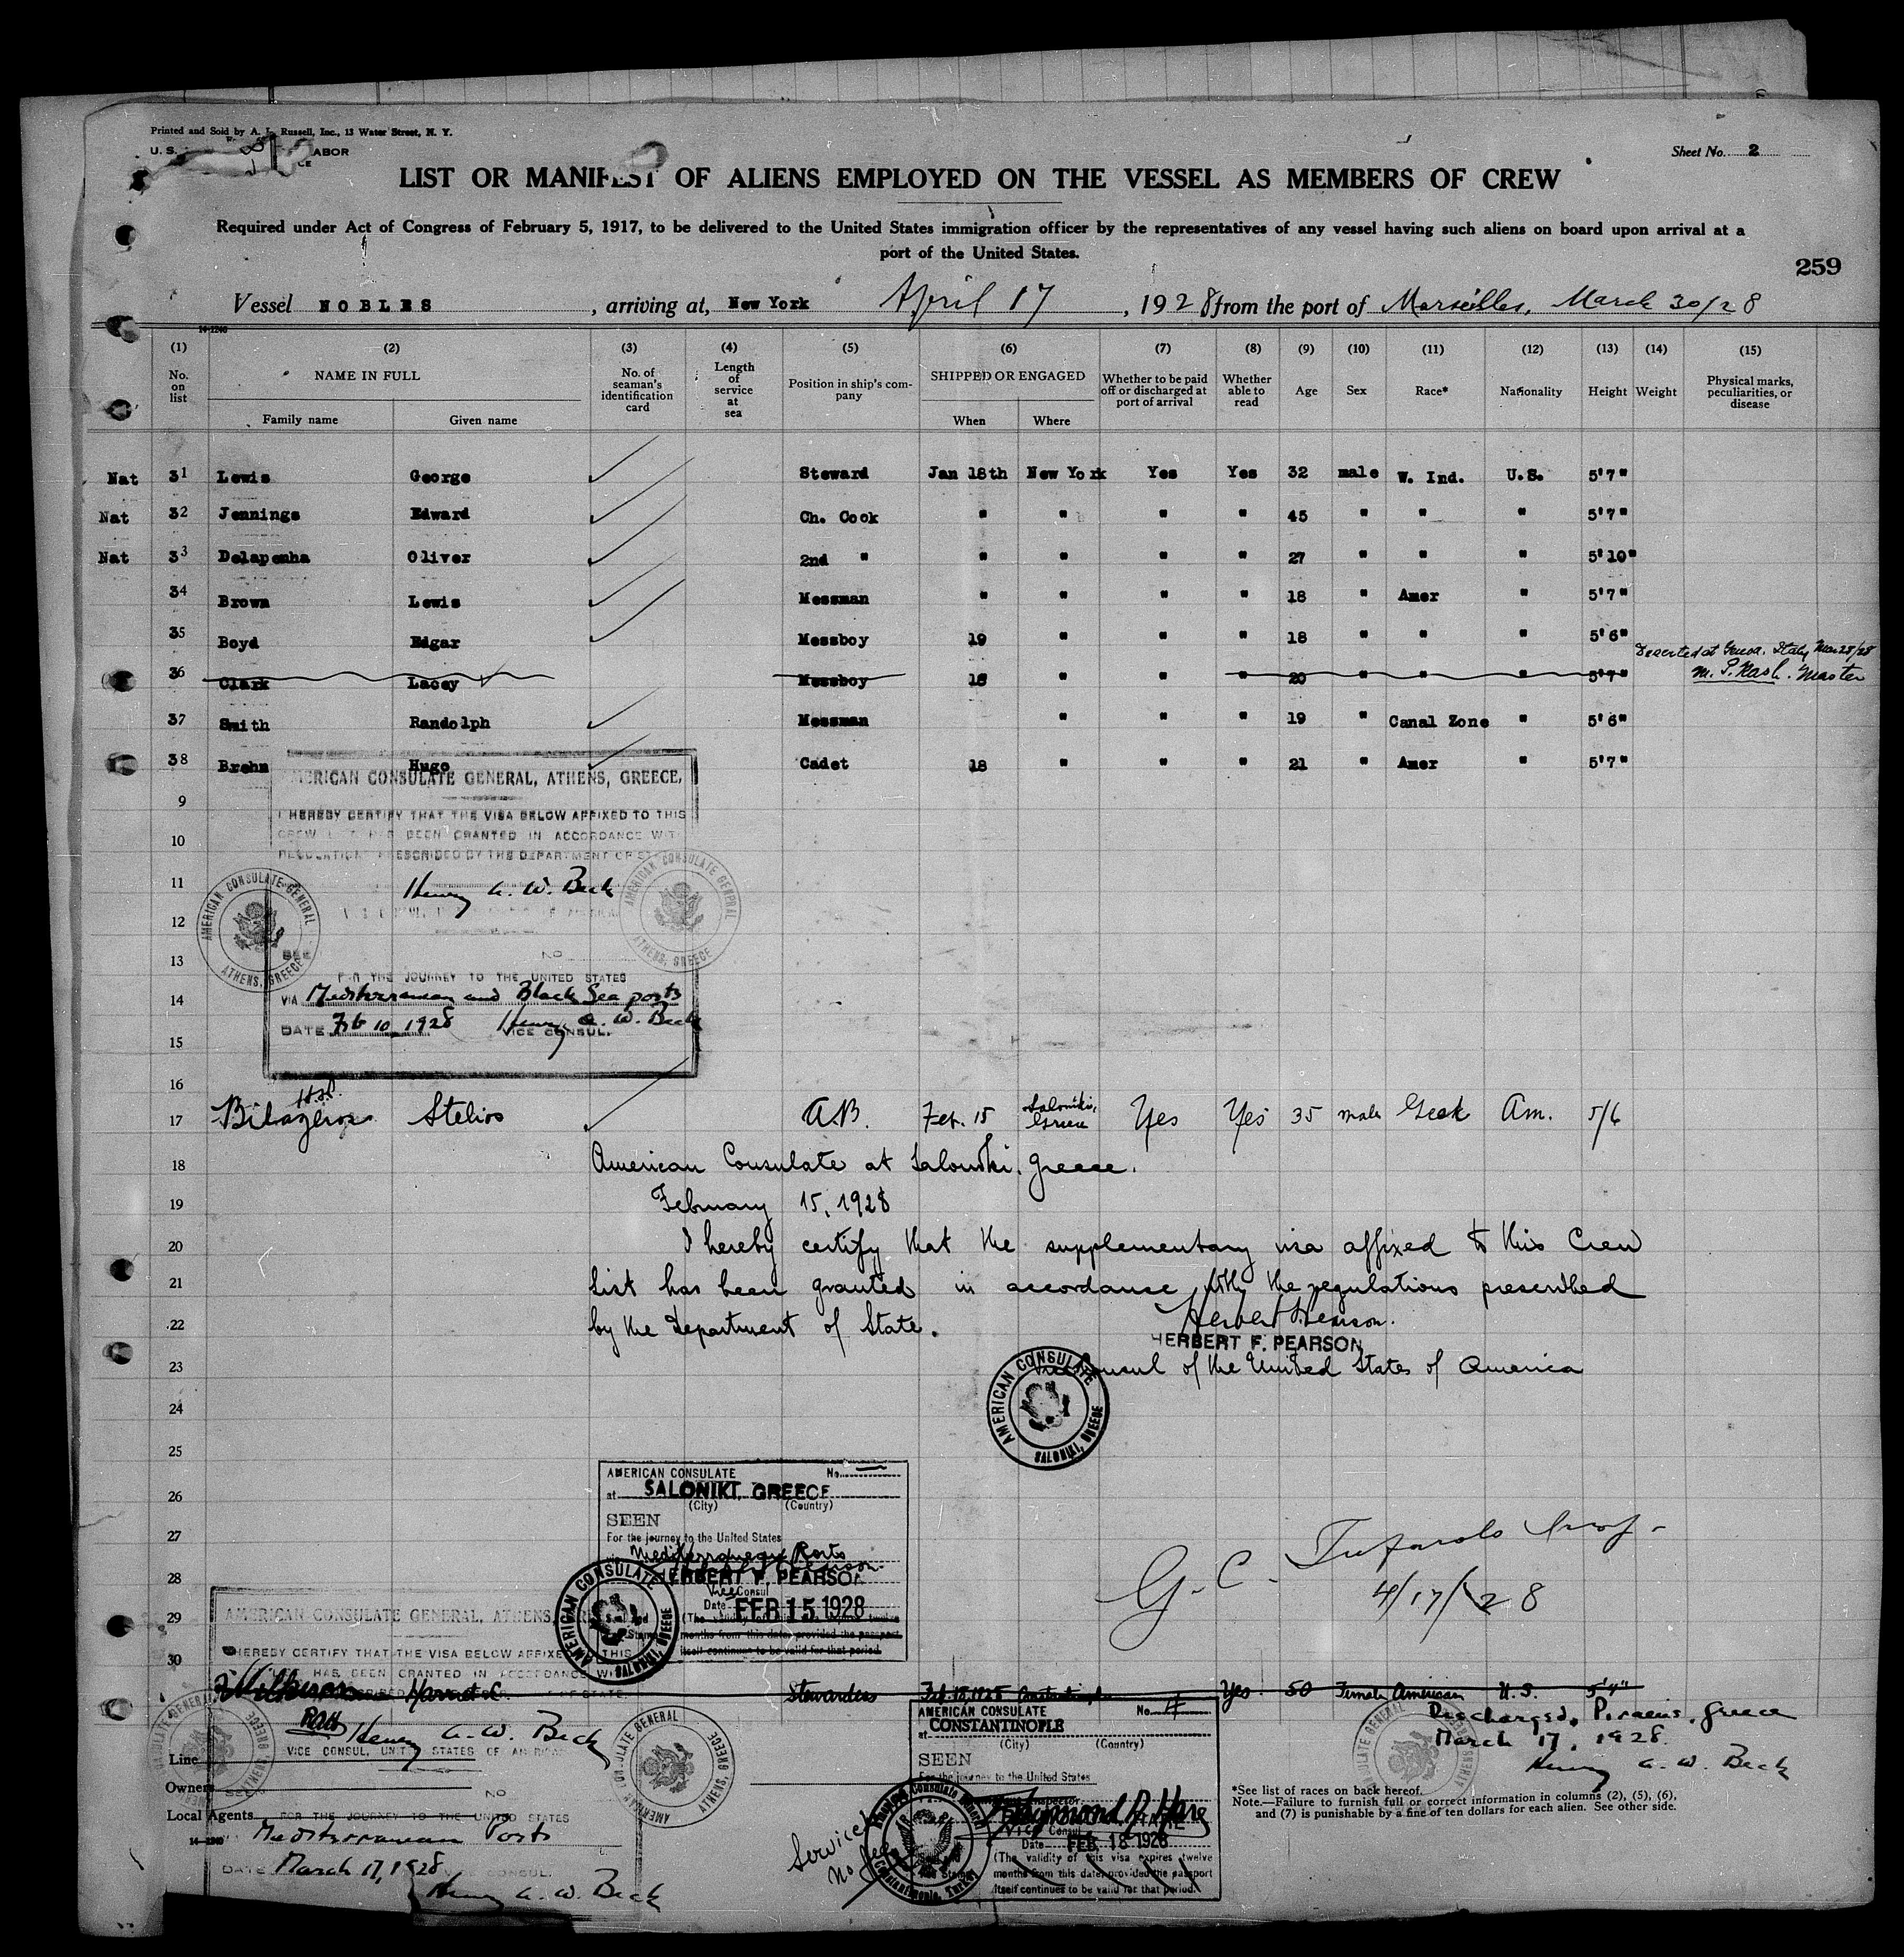 Printed and Sold by A. L. Russell, Inc., 13 Water Street, N. Y.
U. S. LABOR
Sheet No. 2
LIST OR MANIFEST OF ALIENS EMPLOYED ON THE VESSEL AS MEMBERS OF CREW
Required under Act of Congress of February 5, 1917, to be delivered to the United States immigration officer by the representatives of any vessel having such aliens on board upon arrival at a
port of the United States.
259
Vessel NOBLES, arriving at, New York April 17, 1928 from the port of Marseilles, March 30/28
14-1240
(1) (2) (3) (4) (5) (6) (7) (8) (9) (10) (11) (12) (13) (14) (15)
No. on list NAME IN FULL Family name Given name No. of seaman's identification card Length of service at sea Position in ship's company SHIPPED OR ENGAGED When Where Whether to be paid off or discharged at port of arrival Whether able to read Age Sex Race* Nationality Height Weight Physical marks, peculiarities, or disease
Nat 31 Lewis George Steward Jan 18th New York Yes Yes 32 male W. Ind. U.S. 5'7"
Nat 32 Jennings Edward Ch. Cook " " " " 45 " " " 5'7"
Nat 33 Delapenha Oliver 2nd " " " " " 27 " " " 5'10"
34 Brown Lewis Messman " " " " 18 " Amer " 5'7"
35 Boyd Edgar Messboy 19 " " " 18 " " " 5'6"
Deserted at Genoa, Italy Mar 28/28
36 Clark Lacey Messboy 18 " " " 20 " " " 5'7" M. P. Nash. Master
37 Smith Randolph Messman " " " 19 " Canal Zone " 5'6"
38 Brehm Hugo Cadet 18 " " " 21 " Amer " 5'7"
AMERICAN CONSULATE GENERAL, ATHENS, GREECE,
9
I HEREBY CERTIFY THAT THE VISA BELOW AFFIXED TO THIS
10
CREW LIST HAS BEEN GRANTED IN ACCORDANCE WITH
REGULATIONS PRESCRIBED BY THE DEPARTMENT OF STATE
11
Henry A. W. Beck
AMERICAN CONSULATE GENERAL ATHENS, GREECE
AMERICAN CONSULATE GENERAL ATHENS, GREECE
12
SEEN
NO
13
FOR THE JOURNEY TO THE UNITED STATES
14
VIA Mediterranean and Black Sea ports
DATE Feb 10, 1928 Henry A. W. Beck
VICE CONSUL.
15
16
17 Stelios A.B. Feb. 15 Saloniki, Greece Yes Yes 35 male Greek Am. 5/6
18 American Consulate at Saloniki, Greece.
19 February 15, 1928
20 I hereby certify that the supplementary visa affixed to this Crew
21 List has been granted in accordance with the regulations prescribed
22 by the Department of State.
Herbert F. Pearson.
HERBERT F. PEARSON
23 Vice Consul of the United States of America
AMERICAN CONSULATE SALONIKI, GREECE
24
25
AMERICAN CONSULATE No.
26 at SALONIKI, GREECE
(City) (Country)
SEEN
27 For the journey to the United States
via Mediterranean Ports
28 HERBERT F. PEARSON
Vice Consul
29 Date FEB 15 1928
(The validity of this visa expires twelve
months from this date provided the passport
itself continues to be valid for that period.
AMERICAN CONSULATE SALONIKI, GREECE
G. C. Tufarolo Insp.
4/17/28
AMERICAN CONSULATE GENERAL, ATHENS, GREECE
30
I HEREBY CERTIFY THAT THE VISA BELOW AFFIXED TO THIS
HAS BEEN GRANTED IN ACCORDANCE WITH
Harriet C. Stewardess Feb 18, 1928 Constantinople Yes 50 Female American U.S. 5'4"
Discharged, Piraeus, Greece
March 17, 1928.
Henry A. W. Beck
Henry A. W. Beck
VICE CONSUL, UNITED STATES OF AMERICA
AMERICAN CONSULATE GENERAL ATHENS, GREECE
AMERICAN CONSULATE No. 4
at CONSTANTINOPLE
(City) (Country)
SEEN
For the journey to the United States
Raymond A. Hare
Vice Consul
Date FEB 18 1928
(The validity of this visa expires twelve
months from this date, provided the passport
itself continues to be valid for that period.)
Constantinople, Turkey
Service No fee
Line
Owners
SEEN
NO
Local Agents
FOR THE JOURNEY TO THE UNITED STATES
14-1240
Mediterranean Ports
DATE March 17, 1928 VICE CONSUL.
Henry A. W. Beck
*See list of races on back hereof.
Note.—Failure to furnish full or correct information in columns (2), (5), (6),
and (7) is punishable by a fine of ten dollars for each alien. See other side.